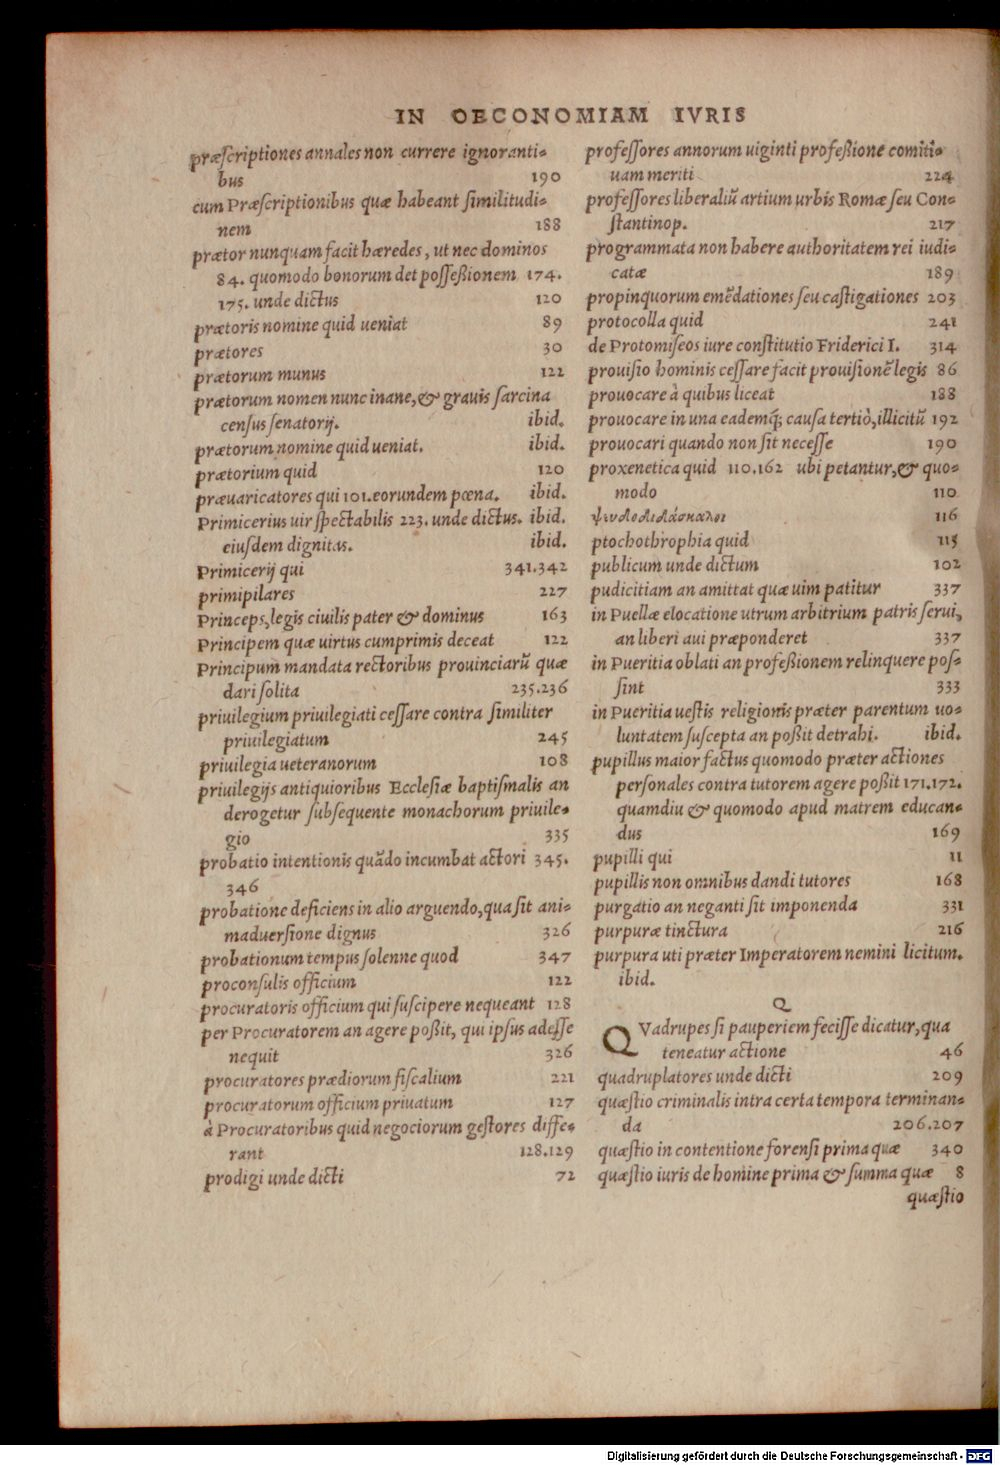 IN OECONOMIAM IVRIS
præſcriptiones annales non currere ignoranti-
bus 190
cum Præſcriptionibus quæ habeant ſimilitudi-
nem 188
prætor nunquam facit hæredes, ut nec dominos
84. quomodo bonorum det poſſeßionem 174.
175. unde dictus 120
prætoris nomine quid ueniat 89
prætores 30
prætorum munus 122
prætorum nomen nunc inane, & grauis ſarcina
cenſus ſenatorij. ibid.
prætorum nomine quid ueniat. ibid.
prætorium quid 120
præuaricatores qui 101. eorundem pœna. ibid.
Primicerius uir ſpectabilis 223. unde dictus. ibid.
eiuſdem dignitas. ibid.
Primicerij qui 341.342
primipilares 227
Princeps, legis ciuilis pater & dominus 163
Principem quæ uirtus cumprimis deceat 122
Principum mandata rectoribus prouinciarũ quæ
dari ſolita 235.236
priuilegium priuilegiati ceſſare contra ſimiliter
priuilegiatum 245
priuilegia ueteranorum 108
priuilegijs antiquioribus Eccleſiæ baptiſmalis an
derogetur ſubſequente monachorum priuile-
gio 335
probatio intentionis quãdo incumbat actori 345.
346
probatione deficiens in alio arguendo, qua ſit ani-
maduerſione dignus 326
probationum tempus ſolenne quod 347
proconſulis officium 122
procuratoris officium qui ſuſcipere nequeant 128
per Procuratorem an agere poßit, qui ipſus adeſſe
nequit 326
procuratores prædiorum fiſcalium 221
procuratorum officium priuatum 127
à Procuratoribus quid negociorum geſtores diffe-
rant 128.129
prodigi unde dicti 72
profeſſores annorum uiginti profeßione comiti-
uam meriti 224
profeſſores liberaliũ artium urbis Romæ ſeu Con-
ſtantinop. 217
programmata non habere authoritatem rei iudi-
catæ 189
propinquorum emẽdationes ſeu caſtigationes 203
protocolla quid 241
de Protomiſeos iure conſtitutio Friderici I. 314
prouiſio hominis ceſſare facit prouiſionẽ legis 86
prouocare à quibus liceat 188
prouocare in una eademq́; cauſa tertiò, illicitũ 192
prouocari quando non ſit neceſſe 190
proxenetica quid 110.162 ubi petantur, & quo-
modo 110
ψευδοδιδάσκαλοι 116
ptochothrophia quid 115
publicum unde dictum 102
pudicitiam an amittat quæ uim patitur 337
in Puellæ elocatione utrum arbitrium patris ſerui,
an liberi aui præponderet 337
in Pueritia oblati an profeßionem relinquere poſ-
ſint 333
in Pueritia ueſtis religionis præter parentum uo-
luntatem ſuſcepta an poßit detrahi. ibid.
pupillus maior factus quomodo præter actiones
perſonales contra tutorem agere poßit 171.172.
quamdiu & quomodo apud matrem educan-
dus 169
pupilli qui 11
pupillis non omnibus dandi tutores 168
purgatio an neganti ſit imponenda 331
purpuræ tinctura 216
purpura uti præter Imperatorem nemini licitum.
ibid.
Q
QVadrupes ſi pauperiem feciſſe dicatur, qua
teneatur actione 46
quadruplatores unde dicti 209
quæſtio criminalis intra certa tempora terminan-
da 206.207
quæſtio in contentione forenſi prima quæ 340
quæſtio iuris de homine prima & ſumma quæ 8
quæſtio
Digitalisierung gefördert durch die Deutsche Forschungsgemeinschaft - DFG